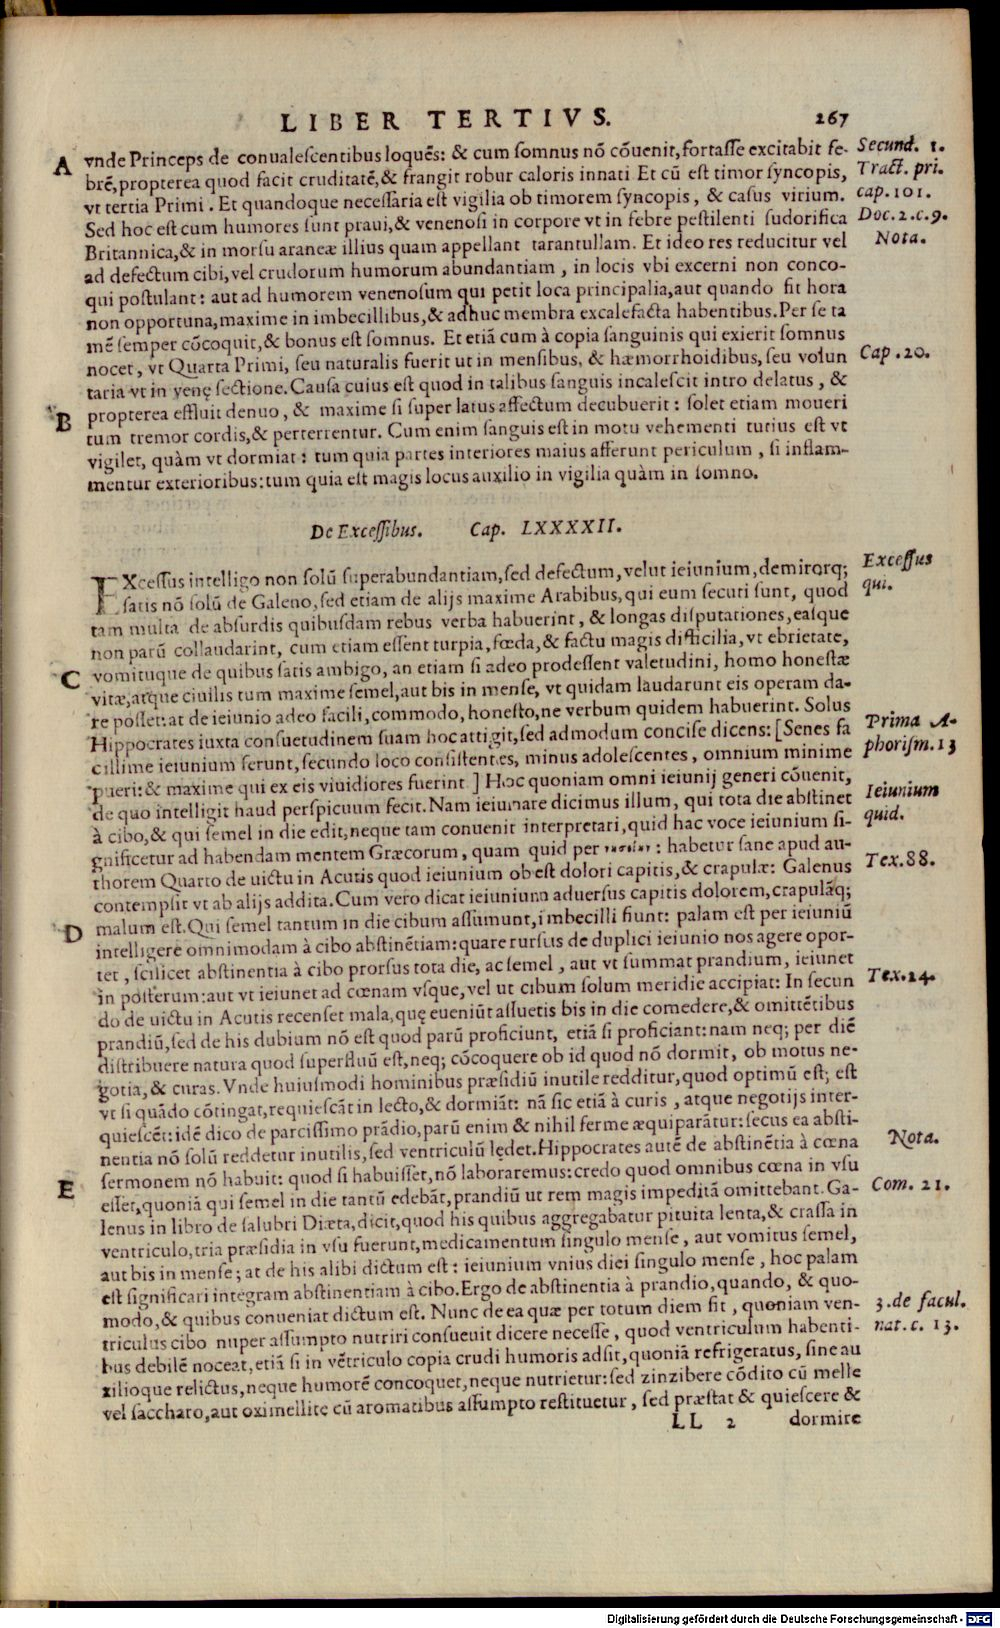 LIBER TERTIVS. 267
A vnde Princeps de conualescentibus loquẽs: & cum somnus nõ cõuenit, fortasse excitabit fe- Secund. 1.
brẽ, propterea quod facit cruditatẽ, & frangit robur caloris innati Et cũ est timor syncopis, Tract. pri.
vt tertia Primi. Et quandoque necessaria est vigilia ob timorem syncopis, & casus virium. cap. 101.
Sed hoc est cum humores sunt praui, & venenosi in corpore vt in febre pestilenti sudorifica Doc. 2. c. 9.
Britannica, & in morsu araneæ illius quam appellant tarantullam. Et ideo res reducitur vel Nota.
ad defectum cibi, vel crudorum humorum abundantiam, in locis vbi excerni non conco-
qui postulant: aut ad humorem venenosum qui petit loca principalia, aut quando fit hora
non opportuna, maxime in imbecillibus, & adhuc membra excalefacta habentibus. Per se ta
mẽ semper cõcoquit, & bonus est somnus. Et etiã cum à copia sanguinis qui exierit somnus
nocet, vt Quarta Primi, seu naturalis fuerit ut in mensibus, & hæmorrhoidibus, seu volun Cap. 20.
taria vt in venę sectione. Causa cuius est quod in talibus sanguis incalescit intro delatus, &
B propterea effluit denuo, & maxime si super latus affectum decubuerit: solet etiam moueri
tum tremor cordis, & perterrentur. Cum enim sanguis est in motu vehementi tutius est vt
vigilet, quàm vt dormiat: tum quia partes interiores maius afferunt periculum, si inflam-
mentur exterioribus: tum quia est magis locus auxilio in vigilia quàm in somno.
De Excessibus. Cap. LXXXXII.
EXcessus intelligo non solũ superabundantiam, sed defectum, velut ieiunium, demirorq; Excessus
satis nõ solũ de Galeno, sed etiam de alijs maxime Arabibus, qui eum secuti sunt, quod qui.
tam multa de absurdis quibusdam rebus verba habuerint, & longas disputationes, easque
non parũ collaudarint, cum etiam essent turpia, fœda, & factu magis difficilia, vt ebrietate,
C vomituque de quibus satis ambigo, an etiam si adeo prodessent valetudini, homo honestæ
vitæ, atque ciuilis tum maxime semel, aut bis in mense, vt quidam laudarunt eis operam da-
re posset: at de ieiunio adeo facili, commodo, honesto, ne verbum quidem habuerint. Solus
Hippocrates iuxta consuetudinem suam hoc attigit, sed admodum concise dicens: [Senes fa Prima A-
cillime ieiunium ferunt, secundo loco consistentes, minus adolescentes, omnium minime phorism. 13
pueri: & maxime qui ex eis viuidiores fuerint.] Hoc quoniam omni ieiunij generi cõuenit,
de quo intelligit haud perspicuum fecit. Nam ieiunare dicimus illum, qui tota die abstinet Ieiunium
à cibo, & qui semel in die edit, neque tam conuenit interpretari, quid hac voce ieiunium si- quid.
gnificetur ad habendam mentem Græcorum, quam quid per : habetur sane apud au-
thorem Quarto de uictu in Acutis quod ieiunium obest dolori capitis, & crapulæ: Galenus Tex. 88.
contempsit vt ab alijs addita. Cum vero dicat ieiunium aduersus capitis dolorem, crapulãq;
D malum est. Qui semel tantum in die cibum assumunt, imbecilli fiunt: palam est per ieiuniũ
intelligere omnimodam à cibo abstinẽtiam: quare rursus de duplici ieiunio nos agere opor-
tet, scilicet abstinentia à cibo prorsus tota die, ac semel, aut vt summat prandium, ieiunet
in posterum: aut vt ieiunet ad cœnam vsque, vel ut cibum solum meridie accipiat: In secun Tex. 24.
do de uictu in Acutis recenset mala, quę eueniũt assuetis bis in die comedere, & omittẽtibus
prandiũ, sed de his dubium nõ est quod parũ proficiunt, etiã si proficiant: nam neq; per diẽ
distribuere natura quod superfluũ est, neq; cõcoquere ob id quod nõ dormit, ob motus ne-
gotia, & curas. Vnde huiusmodi hominibus præsidiũ inutile redditur, quod optimũ est; est
vt si quãdo cõtingat, requiescãt in lecto, & dormiãt: nã sic etiã à curis, atque negotijs inter-
quiescẽt: idẽ dico de parcissimo prãdio, parũ enim & nihil ferme æquiparãtur: secus ea absti-
nentia nõ solũ reddetur inutilis, sed ventriculũ lędet. Hippocrates autẽ de abstinẽtia à cœna Nota.
E sermonem nõ habuit: quod si habuisset, nõ laboraremus: credo quod omnibus cœna in vsu
esset, quoniã qui semel in die tantũ edebãt, prandiũ ut rem magis impeditã omittebant. Ga- Com. 21.
lenus in libro de salubri Diæta, dicit, quod his quibus aggregabatur pituita lenta, & crassa in
ventriculo, tria præsidia in vsu fuerunt, medicamentum singulo mense, aut vomitus semel,
aut bis in mense; at de his alibi dictum est: ieiunium vnius diei singulo mense, hoc palam
est significari integram abstinentiam à cibo. Ergo de abstinentia à prandio, quando, & quo-
modo, & quibus conueniat dictum est. Nunc de ea quæ per totum diem fit, quoniam ven- 3. de facul.
triculus cibo nuper assumpto nutriri consueuit dicere necesse, quod ventriculum habenti- nat. c. 13.
bus debilẽ noceat, etiã si in vẽtriculo copia crudi humoris adsit, quoniã refrigeratus, sine au
xilioque relictus, neque humorẽ concoquet, neque nutrietur: sed zinzibere cõdito cũ melle
vel saccharo, aut oximellite cũ aromatibus assumpto restituetur, sed præstat & quiescere &
LL 2 dormire
Digitalisierung gefördert durch die Deutsche Forschungsgemeinschaft - DFG